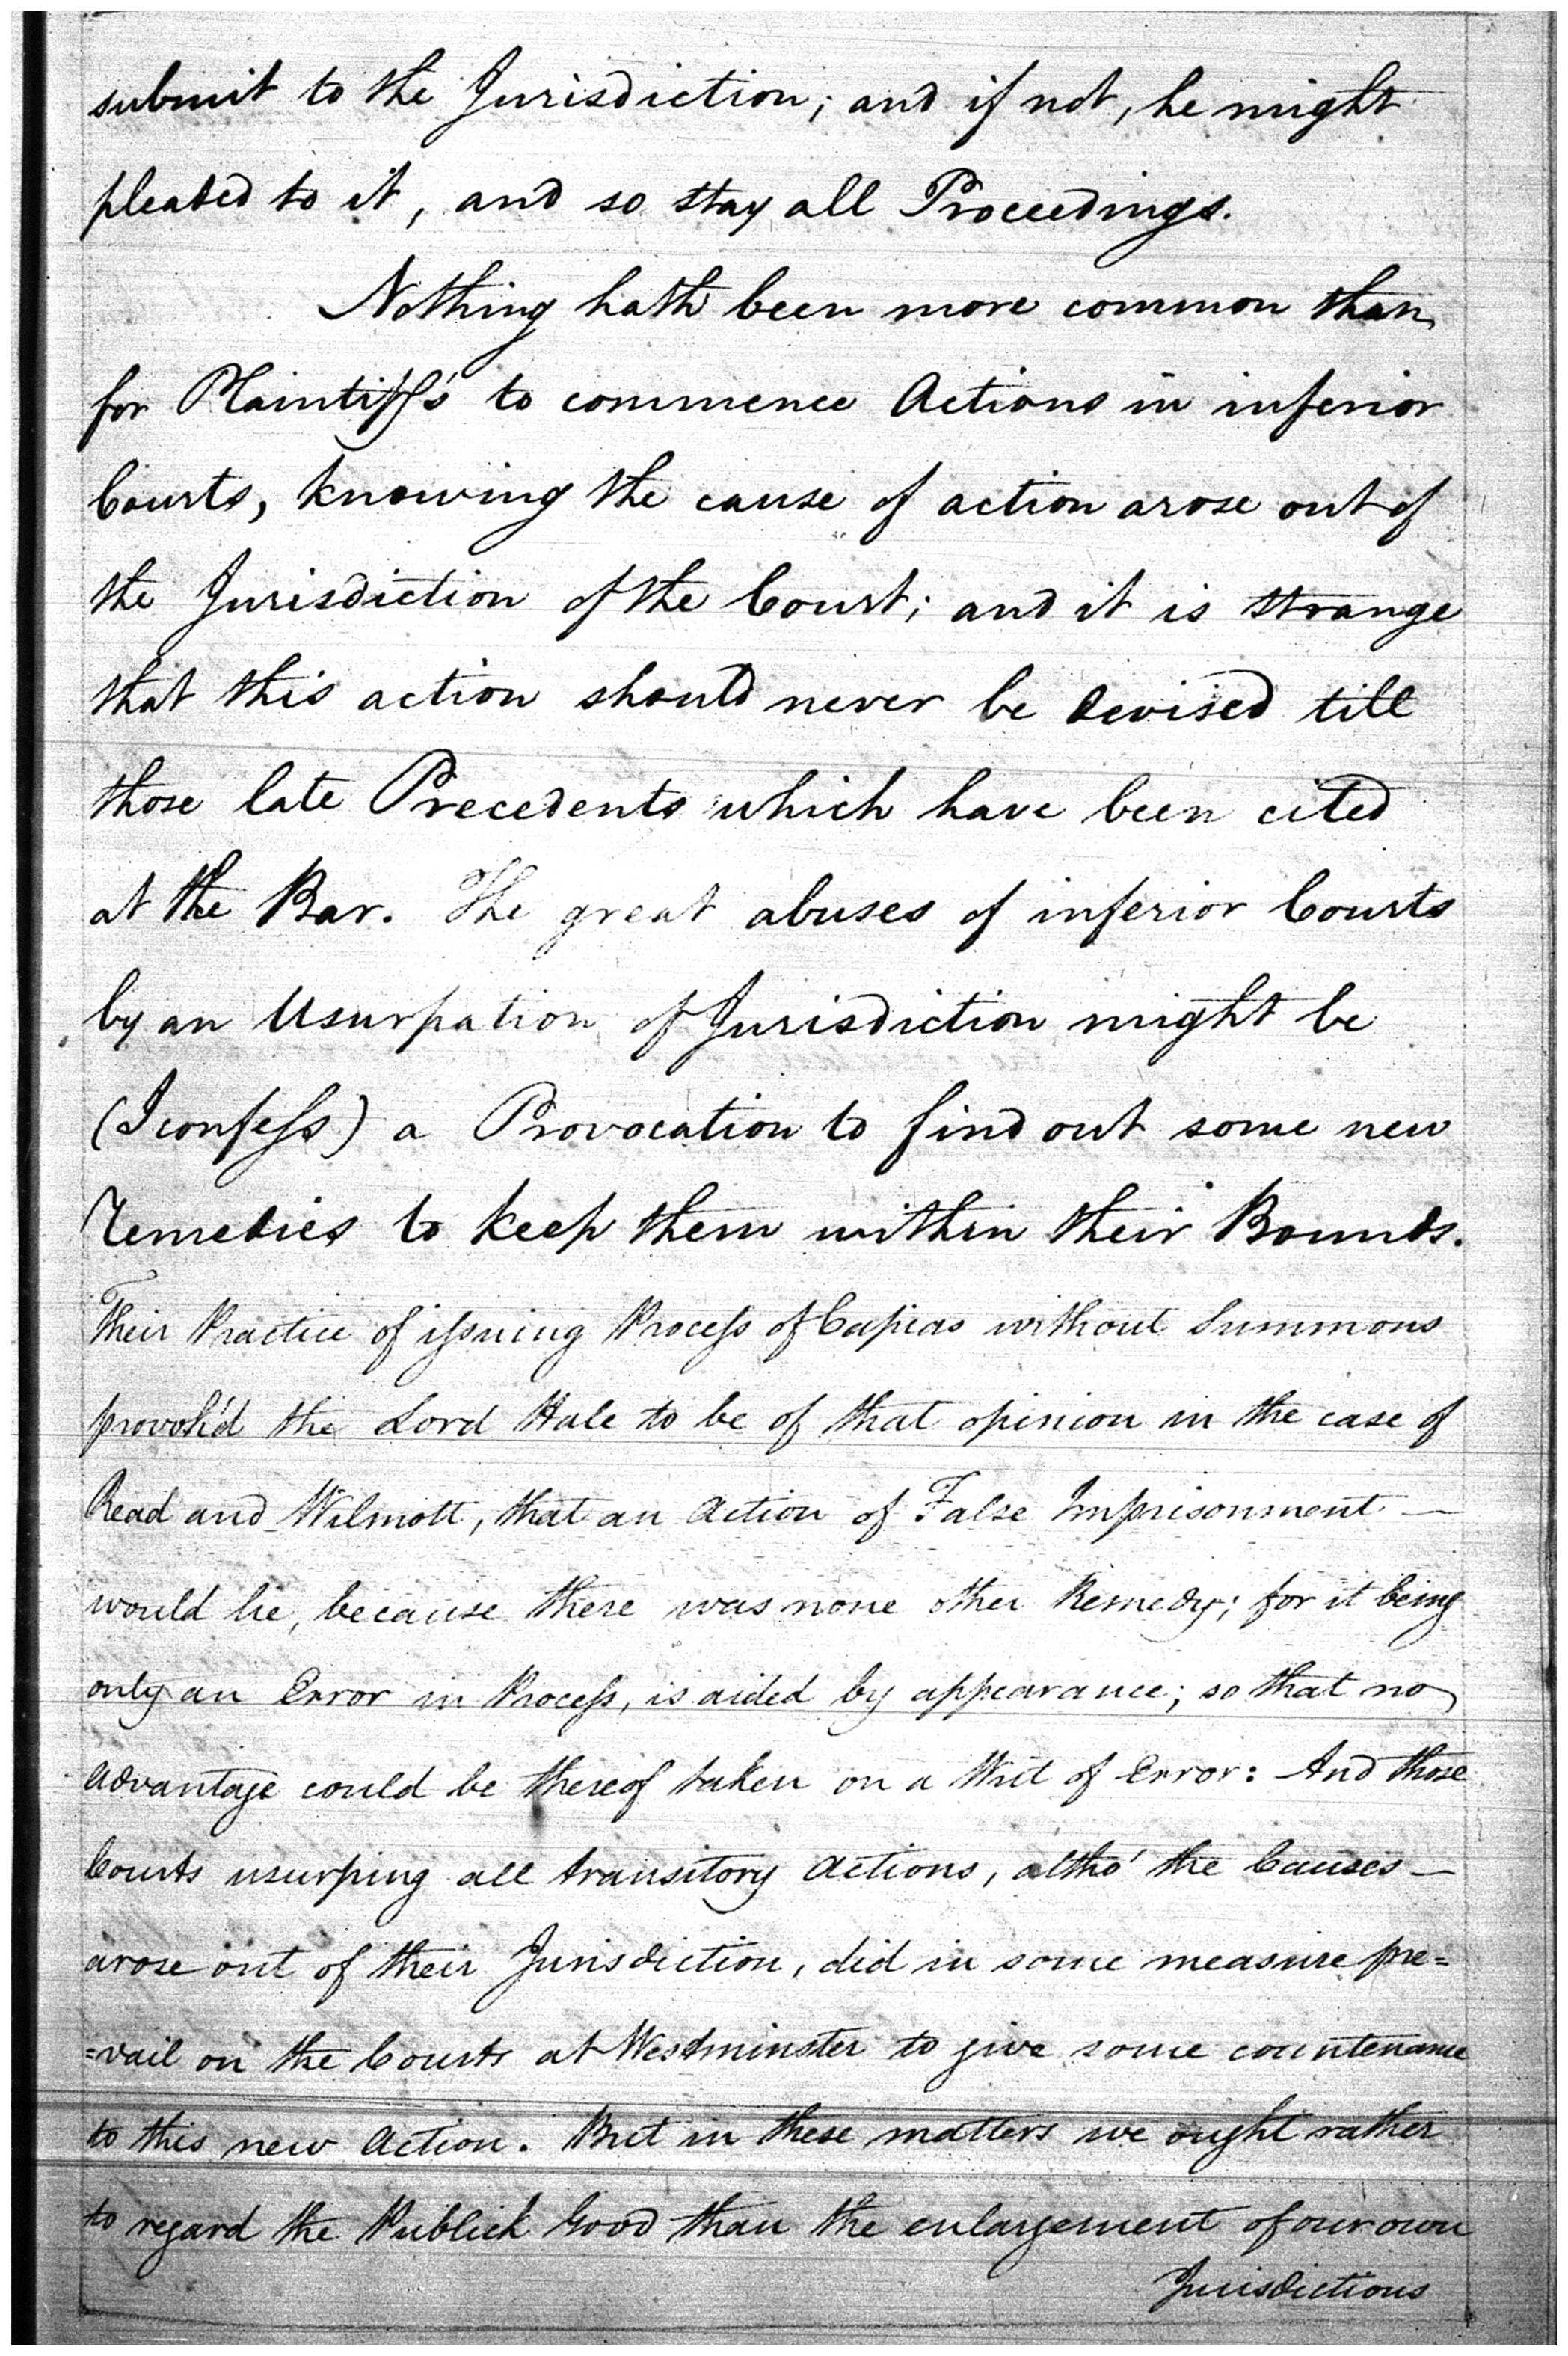 submit to the Jurisdiction; and if not, he might
pleaded to it, and so stay all Proceedings.
Nothing hath been more common than
for Plaintiff's to commence Actions in inferior
Courts, knowing the cause of action arose out of
the Jurisdiction of the Court; and it is strange
that this action should never be devised till
those late Precedents which have been cited
at the Bar. The great abuses of inferior Courts
by an Usurpation of Jurisdiction might be
(I confess) a Provocation to find out some new
remedies to keep them within their Bounds.
Their Practice of issuing Process of Capias without Summons
provok'd the Lord Hale to be of that opinion in the case of
Read and Wilmott, that an Action of False Imprisonment —
would lie, because there was none other Remedy; for it being
only an Error in Process, is aided by appearance; so that no
advantage could be thereof taken on a Writ of Error: And those
Courts usurping all transitory Actions, altho' the Causes —
arose out of their Jurisdiction, did in some measure pre=
=vail on the Courts at Westminster to give some countenance
to this new Action. But in these matters we ought rather
to regard the Publick Good than the enlargement of our own
Jurisdictions